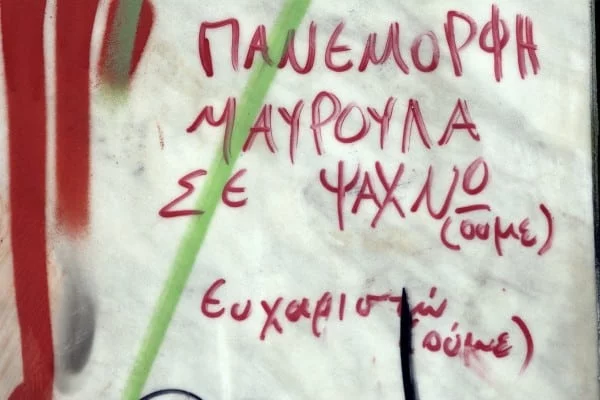 ΠΑΝΕΜΟΡΦΗ
ΜΑΥΡΟΥΛΑ
ΣΕ ΨΑΧΝΟ
(ούμε)
Ευχαριστώ
(ούμε)